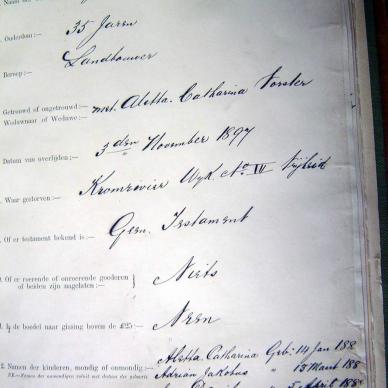 Ouderdom:— 35 Jaren
Beroep:— Landbouwer
Getrouwd of ongetrouwd:— met Aletta Catharina Vorster
Weduwnaar of Weduwe:—
Datum van overlijden:— 3den November 1897
Waar gestorven:— Kromrivier Wyk No IV
Of er testament bekend is:— Geen Testament
Of er roerende of onroerende goederen
of beiden zijn nagelaten:— Niets
de boedel naar gissing boven de £25:— Neen
Namen der kinderen, mondig of onmondig:— Aletta Catharina Geb: 14 Jan 188
Adriän Jakobus " 13 Maart 188
April 188